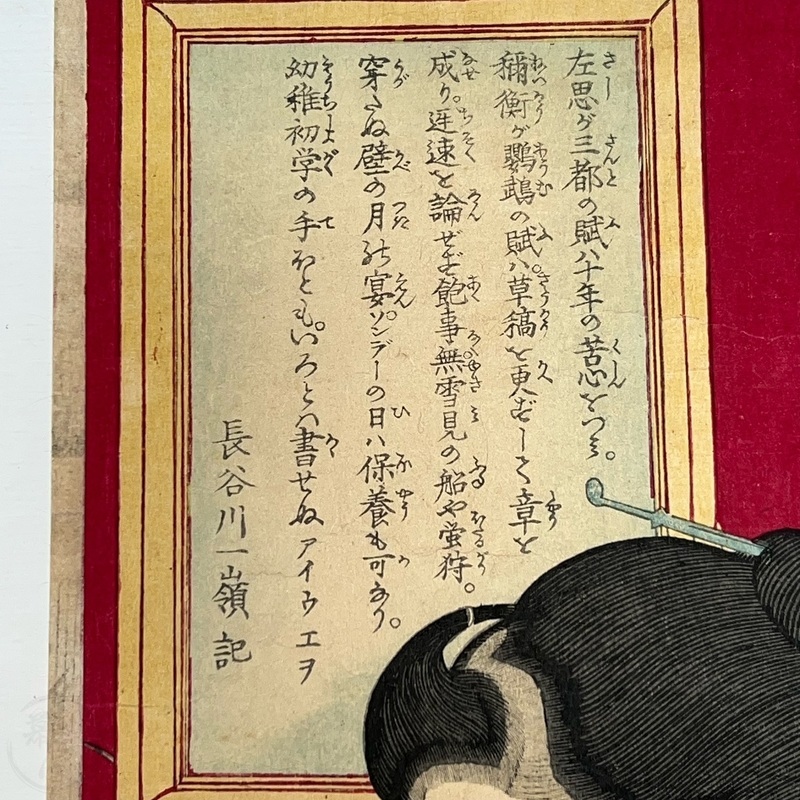 左思が三都の賦ハ十年の苦心をつミ。
禰衡が鸚鵡の賦ハ。草稿を更ずして章を
成り。遅速を論ぜず飽事無雪見の船や蛍狩。
穿たぬ壁の月の宴。ソンデーの日ハ保養も可なり。
幼稚初学の手ほとも。いろとハ書せぬアイウエヲ
長谷川一嶺記